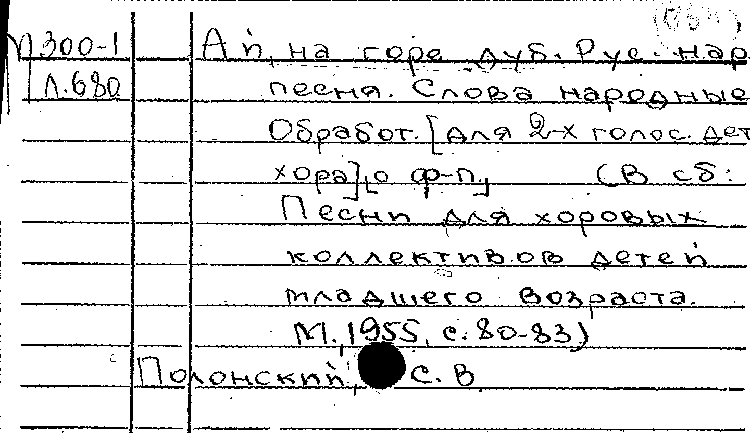 П300-1 Ай, на горе дуб. Рус. нар
Л.680 песня. Слова народные
Обработ. [для 2-х голос. дет
хора] [с ф-п.] (В сб:
Песни для хоровых
коллективов детей
младшего возраста.
М., 1955, с. 80-83)
Полонский, С. В.